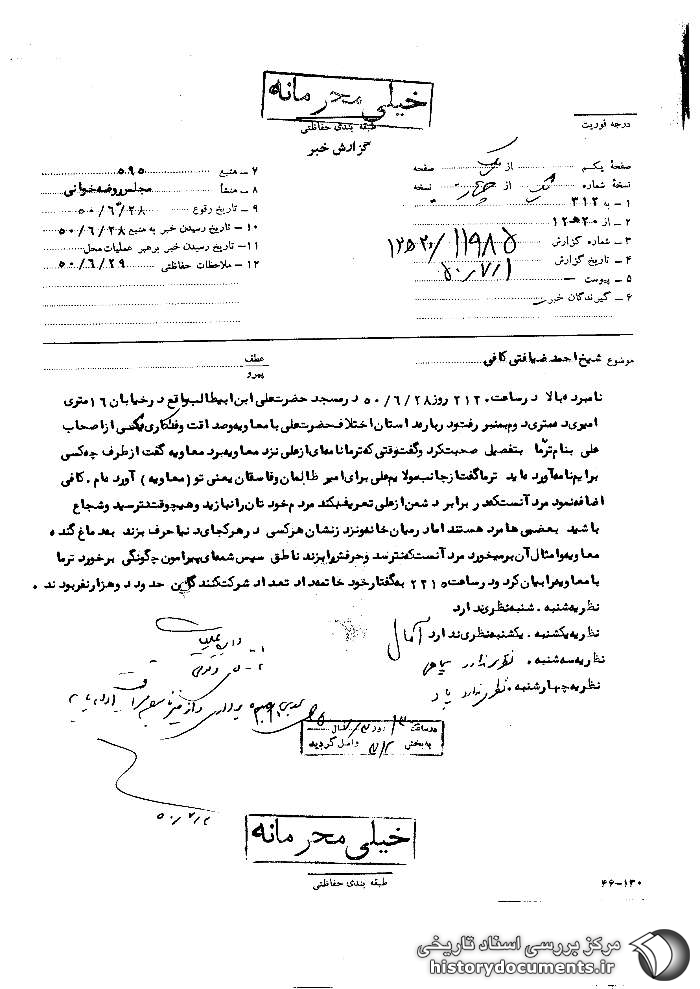 خیلی محرمانه
طبقه بندی حفاظتی
گزارش خبر
درجه فوریت
صفحهٔ یکم از یک صفحه
نسخهٔ شماره یک از چهار نسخه
۱ – به ۳۱۲
۲ – از ۲۰ھ۱۲
۳ – شماره گزارش ۱۱۹۸۵/۲۰ھ۱۲
۴ – تاریخ گزارش ۵۰/۷/۱
۵ – پیوست –
۶ – گیرندگان خبر
۷ – منبع ۵۹۵
۸ – منشأ مجلس روضه خوانی
۹ – تاریخ وقوع ۵۰/۶/۲۸
۱۰ – تاریخ رسیدن خبر به منبع ۵۰/۶/۲۸
۱۱ – تاریخ رسیدن خبر برهبر عملیات محل
۱۲ – ملاحظات حفاظتی ۵۰/۶/۲۹
موضوع شیخ احمد ضیافتی کافی
عطف
پیرو
نامبرده بالا در ساعت ۲۱۲۰ روز ۵۰/۶/۲۸ در مسجد حضرت علی ابن ابیطالب واقع در خیابان ۱۶ متری
امیری ده متری دوم بمنبر رفت و درباره داستان اختلاف حضرت علی با معاویه و صداقت و فداکاری یکی از اصحاب
علی بنام ترما بتفصیل صحبت کرد و گفت وقتی که ترما نامه ای از علی نزد معاویه برد معاویه گفت از طرف چه کسی
برایم نامه آورده اید ترما گفت از جانب مولایم علی برای امیر ظالمان و فاسقان یعنی تو (معاویه) آورده ام. کافی
اضافه نمود مرد آنست که در برابر دشمن از علی تعریف بکند مردم خودتان را نبازید و هیچوقت نترسید و شجاع
باشید بعضی ها مرد هستند اما در میان خانه و نزد زنشان هر کسی در هر کجای دنیا حرف بزند به دماغ گنده
معاویه و امثال آن برمیخورد مرد آنست که نترسد و حرفش را بزند ناطق سپس شمه ای پیرامون چگونگی برخورد ترما
با معاویه را بیان کرد و در ساعت ۲۲۱۰ به گفتار خود خاتمه داد تعداد شرکت کنندگان حدود دو هزار نفر بودند.
نظریه شنبه. شنبه نظری ندارد
نظریه یکشنبه. یکشنبه نظری ندارد آمال
نظریه سه شنبه. نظری ندارد
نظریه چهارشنبه. نظری ندارد
در ساعت ۱۳ روز
به بخش ۳۱۲ واصل گردید
۵۰/۷/۲
خیلی محرمانه
طبقه بندی حفاظتی
۴۶-۱۳۰
مرکز بررسی اسناد تاریخی
historydocuments.ir